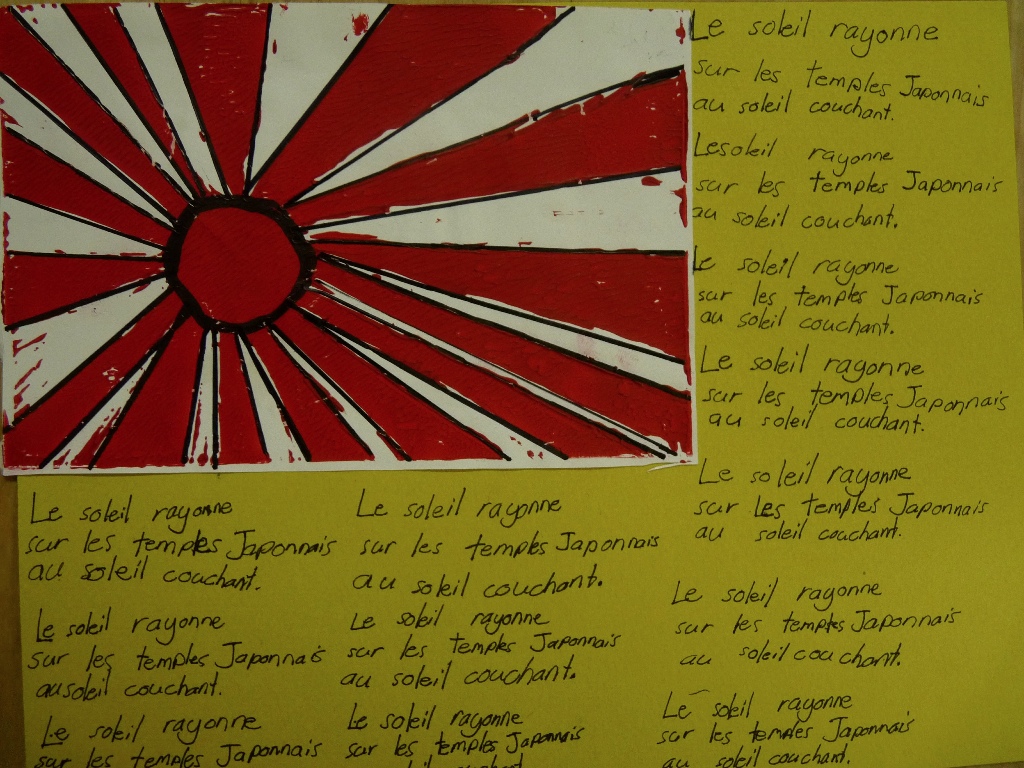 Le soleil rayonne
sur les temples Japonnais
au soleil couchant.
Le soleil rayonne
sur les temples Japonnais
au soleil couchant.
Le soleil rayonne
sur les temples Japonnais
au soleil couchant.
Le soleil rayonne
sur les temples Japonnais
au soleil couchant.
Le soleil rayonne
sur les temples Japonnais
au soleil couchant.
Le soleil rayonne
sur les temples Japonnais
au soleil couchant.
Le soleil rayonne
sur les temples Japonnais
au soleil couchant.
Le soleil rayonne
sur les temples Japonnais
Le soleil rayonne
sur les temples Japonnais
au soleil couchant.
Le soleil rayonne
sur les temples Japonnais
au soleil couchant.
Le soleil rayonne
sur les temples Japonnais
soleil couchant
Le soleil rayonne
sur les temples Japonnais
au soleil couchant.
Le soleil rayonne
sur les temples Japonnais
au soleil couchant.